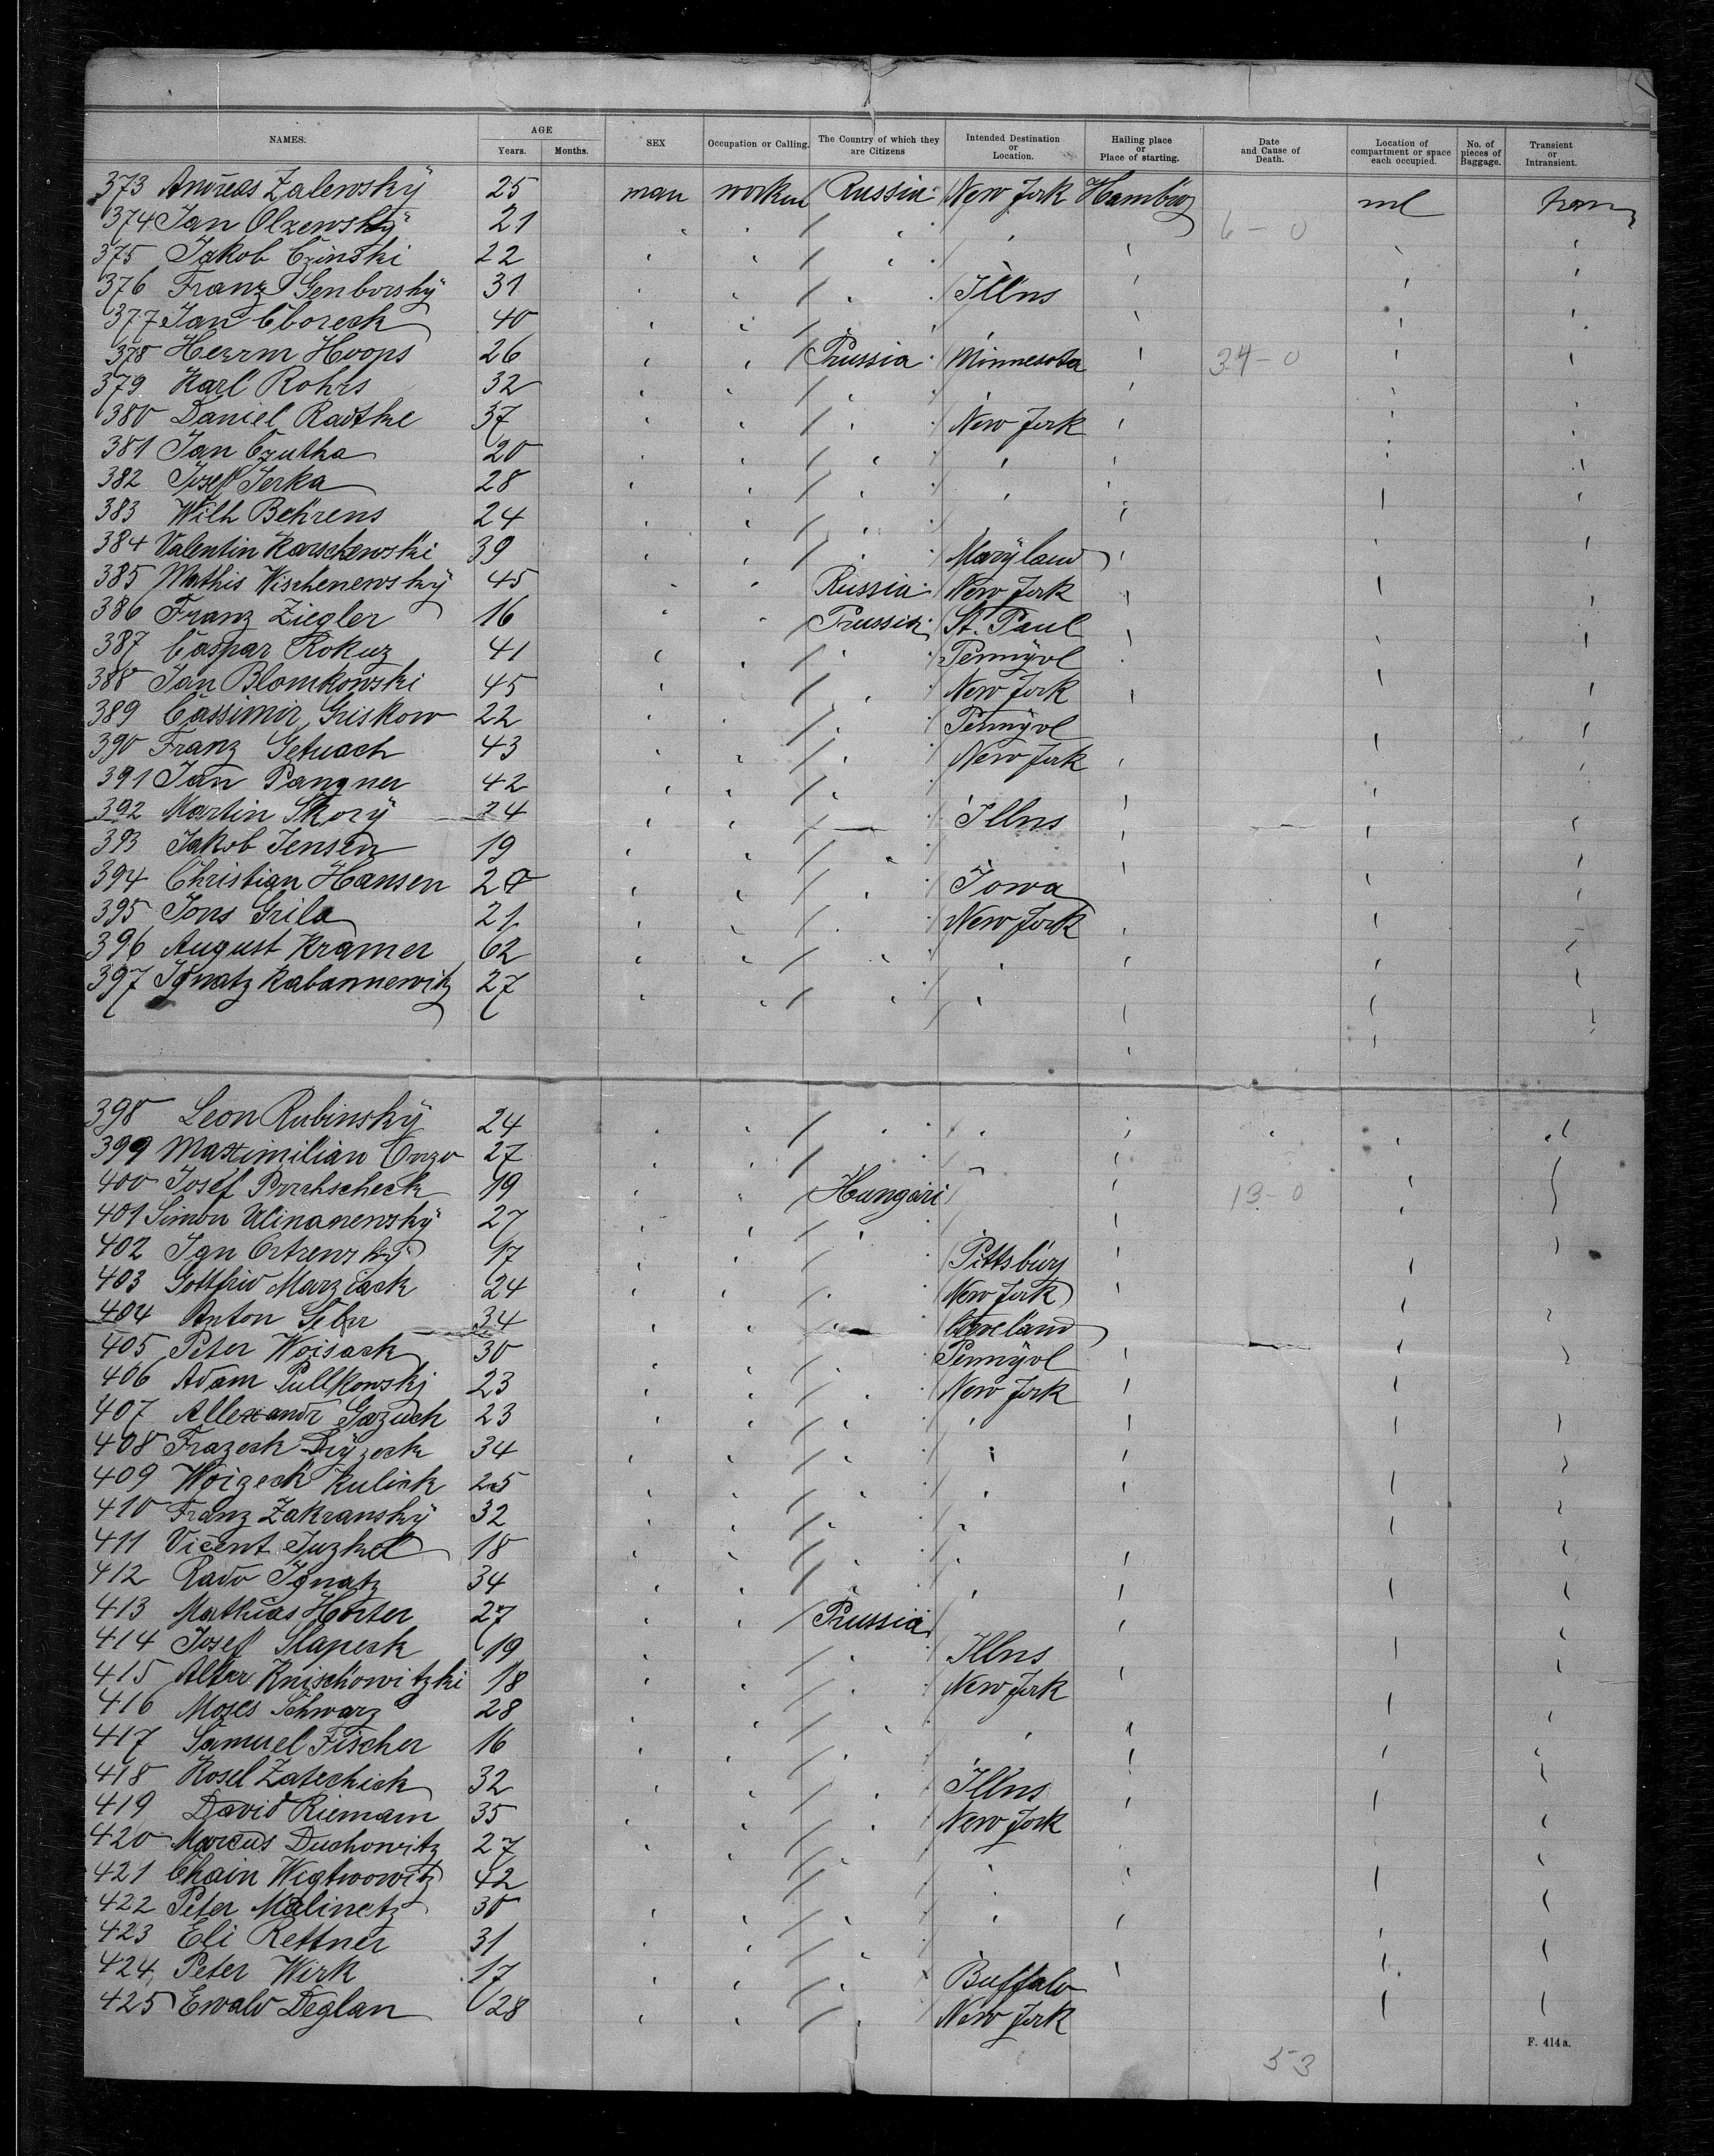 NAMES. AGE Years. Months. SEX Occupation or Calling. The Country of which they are Citizens Intended Destination or Location. Hailing place or Place of starting. Date and Cause of Death. Location of compartment or space each occupied. No. of pieces of Baggage. Transient or Intransient.
373 Andreas Zalewsky 25 man worker Russia New Jork Hamburg
374 Jan Olzewsky 21 6-0
375 Jakob Czinski 22
376 Franz Genborsky 31 Illns
377 Jan Cboreck 40
378 Herrm Hoops 26 Prussia Minnesota 34-0
379 Karl Rohrs 32
380 Daniel Radtke 37 New Jork
381 Jan Czutha 20
382 Josef Jerka 28
383 Wilh Behrens 24
384 Valentin Karschewski 39 Maryland
385 Mathis Wischenewsky 45 Russia New Jork
386 Franz Ziegler 16 Prussia St. Paul
387 Caspar Rokuz 41 Pennÿvl
388 Jan Blomkowski 45 New Jork
389 Cassimir Griskow 22 Pennÿvl
390 Franz Getuach 43 New Jork
391 Jan Pangner 42
392 Martin Skory 24 Illns
393 Jakob Jensen 19
394 Christian Hansen 20 Iowa
395 Jons Grila 21 New Jork
396 August Kramer 62
397 Ignatz Kabannewitz 27
398 Leon Rubinsky 24
399 Maximilian 27
400 Josef Porchscheck 19 Hungari 13-0
401 Simon Ulinanewsky 27
402 Ign Ostrewsky 17 Pittsburg
403 Gottfrid Marziack 24 New Jork
404 Anton 34 Cleveland
405 Peter Woisack 30 Pennÿvl
406 Adam Pullkowski 23 New Jork
407 Allexandr Gazuch 23
408 Frazeck Dryzeck 34
409 Woizeck Kulick 25
410 Franz Zakransky 32
411 Vicent Juzkel 18
412 Rado Ignatz 34
413 Mathias Horter 27 Prussia
414 Josef Slapeck 19 Illns
415 Alter Knischowitzki 18 New Jork
416 Moses Schwarz 28
417 Samuel Fischer 16
418 Rosel Zateckick 32 Illns
419 David Riemann 35 New Jork
420 Marcus Duchowitz 27
421 Chain Wigtwowitz 42
422 Peter Malinetz 30
423 Eli Rettner 31
424 Peter Wirk 17 Buffalo
425 Ewald Deglan 28 New Jork
F. 414a.
53